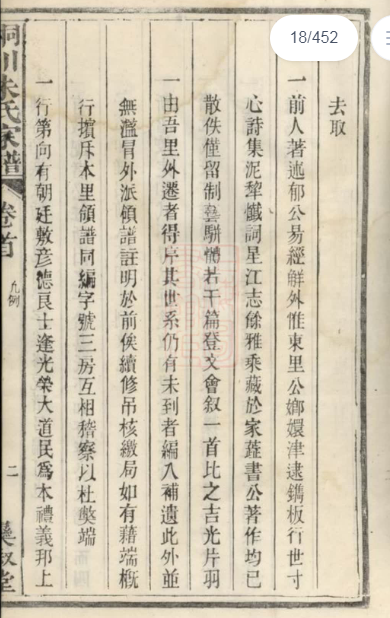 18/452
去取
一前人著述郁公易經解外惟東里公嫏嬛津逮鐫板行世寸
心詩集泥犂懺詞星江志餘雅乘藏於家蓮書公著作均已
散佚僅留制藝駢體若干篇登文會叙一首比之吉光片羽
一由吾里外遷者得序其世系仍有未到者編入補遺此外並
無濫冒外派領譜註明於前俟續修吊核繳局如有藉端概
行擯斥本里領譜同編字號三房互相稽察以杜獘端
一行第向有朝廷敷彦德良士逢光榮大道民爲本禮義邦上
桐川朱氏家譜
卷首
凡例
二
叙堂